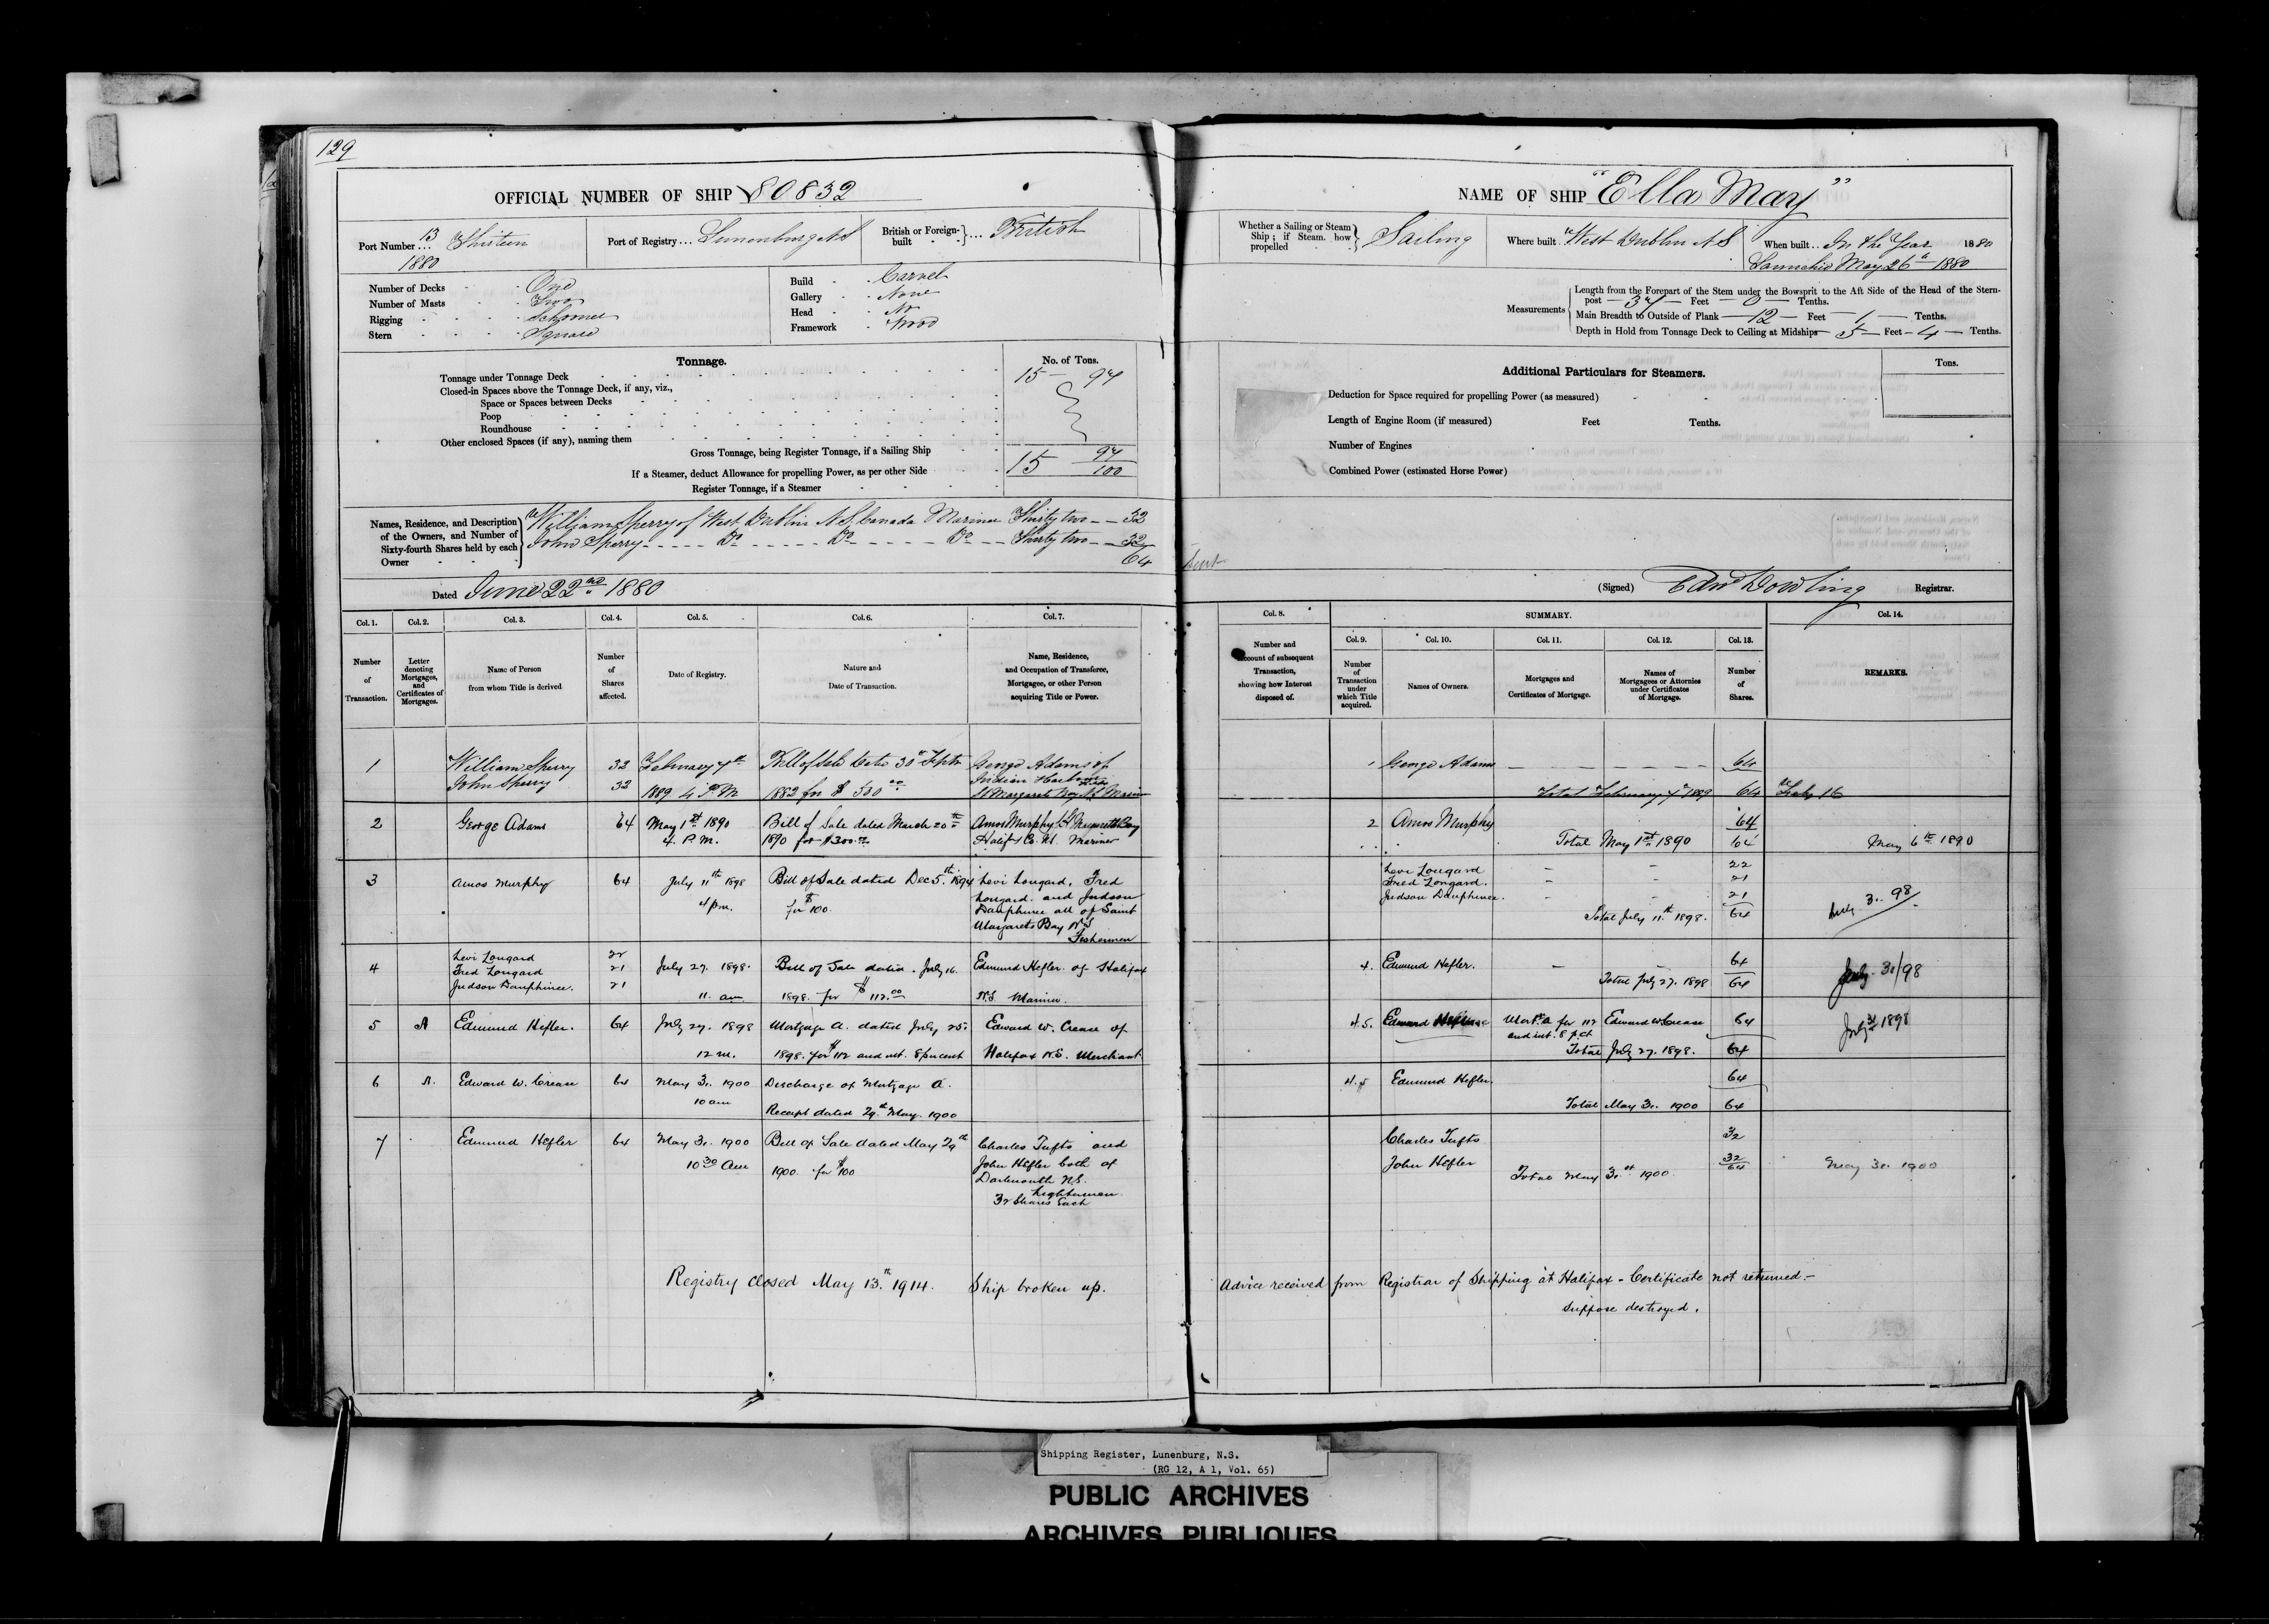 129
OFFICIAL NUMBER OF SHIP 80832
Port Number ... 13 Thirteen
1880
Port of Registry ... Lunenburg N S
British or Foreign-built } ... British
Number of Decks One
Number of Masts Two
Rigging Schooner
Stern Square
Build Carvel
Gallery None
Head No
Framework Wood
Tonnage.
No. of Tons.
Tonnage under Tonnage Deck 15 97
Closed-in Spaces above the Tonnage Deck, if any, viz.,
Space or Spaces between Decks
Poop
Roundhouse
Other enclosed Spaces (if any), naming them
Gross Tonnage, being Register Tonnage, if a Sailing Ship 15 97/100
If a Steamer, deduct Allowance for propelling Power, as per other Side
Register Tonnage, if a Steamer
Names, Residence, and Description of the Owners, and Number of Sixty-fourth Shares held by each Owner
William Sperry of West Dublin N S Canada Mariner Thirty two -- 32
John Sperry ---- Do ----- Do ----- Do -- Thirty two -- 32
64
Dated June 22nd 1880
Col. 1. Col. 2. Col. 3. Col. 4. Col. 5. Col. 6. Col. 7.
Number of Transaction.
Letter denoting Mortgages, and Certificates of Mortgages.
Name of Person from whom Title is derived
Number of Shares affected.
Date of Registry.
Nature and Date of Transaction.
Name, Residence, and Occupation of Transferee, Mortgagee, or other Person acquiring Title or Power.
1 William Sperry 32 February 7th Bill of Sale Date 30th Septr George Adams of
John Sperry 32 1889 4 P.M 1882 for $ 500 00 Indian Harbour
St Margarets Bay N.S Mariner
2 George Adams 64 May 1st 1890 Bill of Sale dated March 20th Amos Murphy St Margarets Bay
4. P.M. 1890 for $300.00 Halifx Co. N.S. Mariner
3 Amos Murphy 64 July 11th 1898 Bill of Sale dated Dec 5th 1894 Levi Longard, Fred
4 pm. for $100. Longard. and Judson
Dauphinee all of Saint
Margarets Bay N.S
Fishermen
4 Levi Longard 22
Fred Longard 21 July 27. 1898. Bill of Sale dated July 16. Edmund Hefler of Halifax
Judson Dauphinee. 21
11. am 1898. for $112.00 N.S. Mariner.
5 A Edmund Hefler. 64 July 27. 1898 Mortgage A. dated July 25. Edward W. Crease of
12 m. 1898. for $112 and int. 8 per cent Halifax N.S. Merchant
6 A. Edward W. Crease 64 May 31. 1900 Discharge of Mortgage A.
10 am Receipt dated 29th May. 1900
7 Edmund Hefler 64 May 31. 1900 Bill of Sale dated May 29th Charles Tufts and
10 30 Am 1900. for $100 John Hefler both of
Dartmouth N.S.
Lightermen
32 Shares Each
Registry closed May 13th 1914. Ship broken up.
NAME OF SHIP "Ella May"
Whether a Sailing or Steam Ship; if Steam, how propelled } Sailing
Where built West Dublin N S
When built .. In the Year 1880
Launched May 26th 1880
Measurements
Length from the Forepart of the Stem under the Bowsprit to the Aft Side of the Head of the Stern-
post — 37 — Feet — 0 — Tenths.
Main Breadth to Outside of Plank — 12 — Feet — 1 — Tenths.
Depth in Hold from Tonnage Deck to Ceiling at Midships — 5 — Feet — 4 — Tenths.
Additional Particulars for Steamers.
Tons.
Deduction for Space required for propelling Power (as measured)
Length of Engine Room (if measured) Feet Tenths.
Number of Engines
Combined Power (estimated Horse Power)
(Signed) Edwd Dowling Registrar.
Col. 8. SUMMARY. Col. 14.
Col. 9. Col. 10. Col. 11. Col. 12. Col. 13.
Number and account of subsequent Transaction, showing how Interest disposed of.
Number of Transaction under which Title acquired.
Names of Owners.
Mortgages and Certificates of Mortgage.
Names of Mortgagees or Attornies under Certificates of Mortgage.
Number of Shares.
REMARKS.
1 George Adams — — — — — 64
Total February 7th 1889 64 Feby 16
2 Amos Murphy 64
Total May 1st 1890 64 May 6th 1890
Levi Longard — — 22
Fred Longard. — — 21
Judson Dauphinee. — — 21
Total July 11th 1898. 64 July 31. 98
4. Edmund Hefler. — — 64
Total July 27. 1898 64 July 31/98
4.5. Edmund Mort. A for 112 Edward W. Crease 64 July 31 1898
and int. 8 p ct
Total July 27. 1898. 64
4.5 Edmund Hefler. 64
Total May 31. 1900 64
Charles Tufts 32
John Hefler 32
64
Total May 31st 1900. May 31. 1900
Advice received from Registrar of Shipping at Halifax - Certificate not returned.-
Suppose destroyed.
Shipping Register, Lunenburg, N.S.
(RG 12, A 1, Vol. 65)
PUBLIC ARCHIVES
ARCHIVES PUBLIQUES